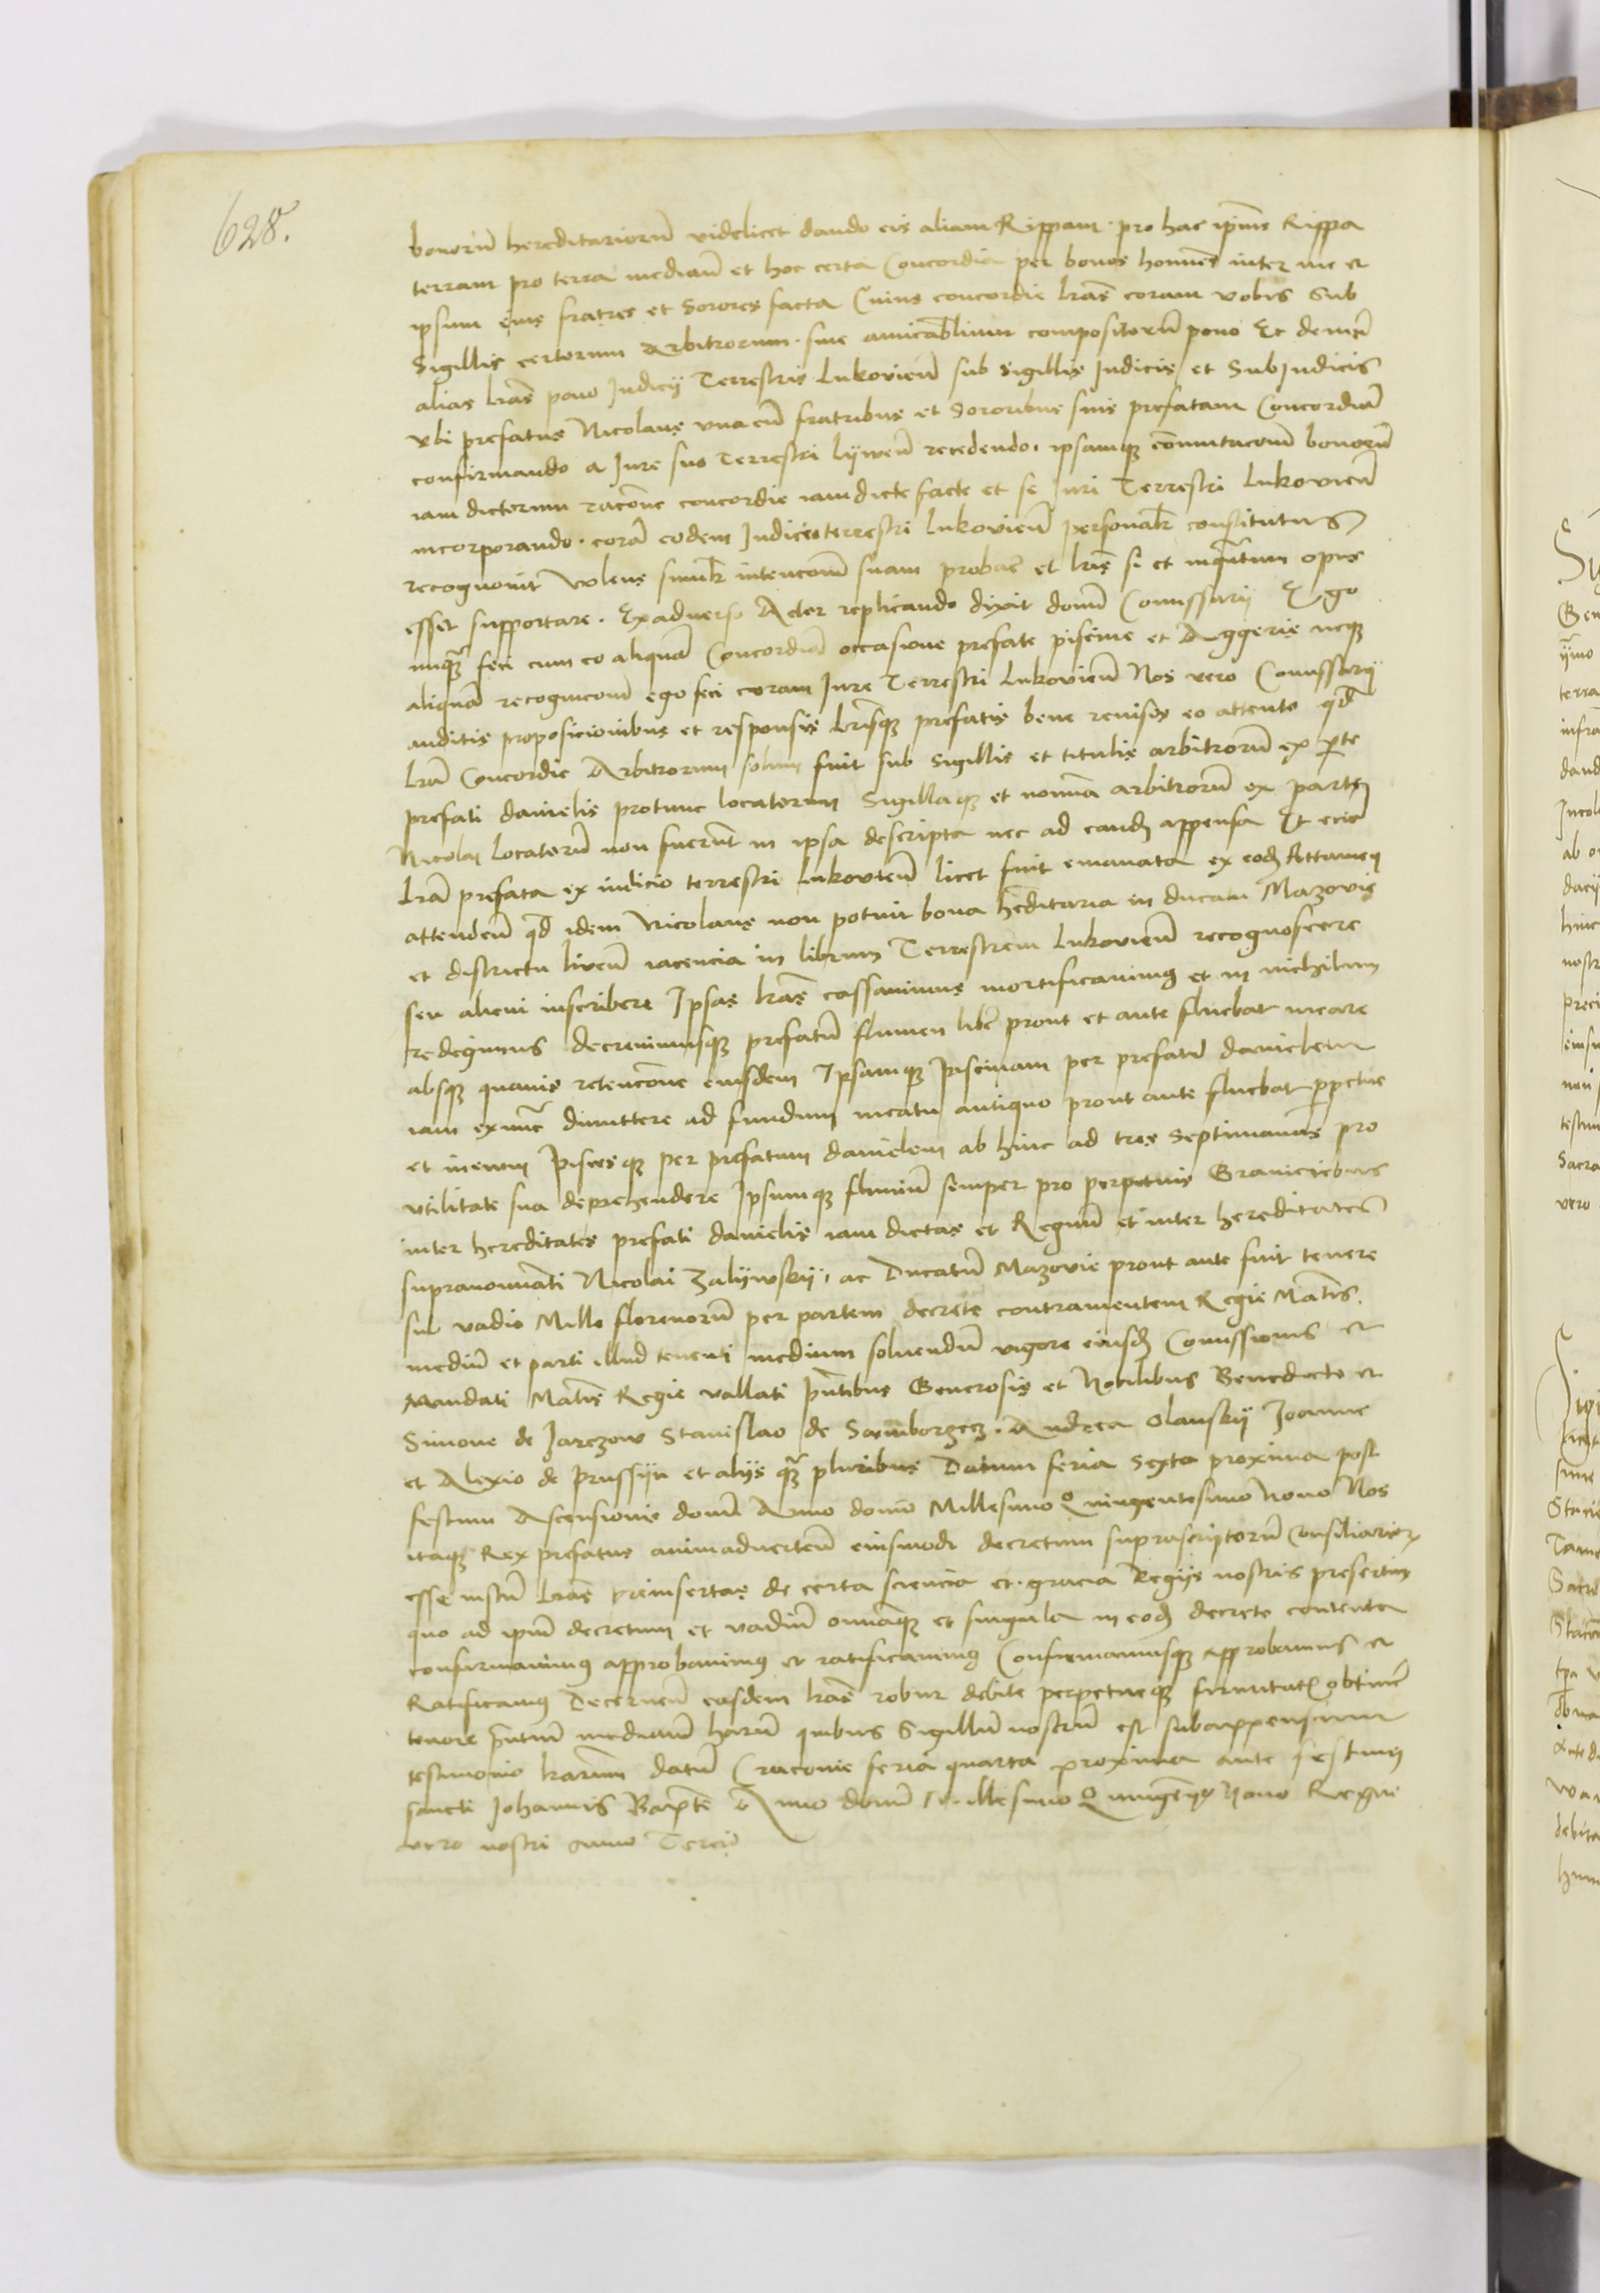 628.
bonorū hereditariorū videlicet dando eis aliam Rippam pro hac ip̄ius Rippa
terram pro terra mediañ et hoc certa Concordia per bonos homines inter me et
ipsum eius fratres et Sorores facta Cuius concordie lrās coram vobis Sub
Sigillis certorum Arbitrorum siue amicabilium compositorū pono Et demū
alias lrās pono Judicij Terrestris Lukovieñ sub sigillis Judicis et SubJudicis
vbi prefatus Nicolaus vna cū fratribus et Sororibus suis prefatam Concordiā
confirmando a Jure suo Terrestri Lyweñ recedendo ipsamq; cōmutacionē bonorū
iam dictorum racōne concordie iam dicte facte et se Juri Terrestri Lukovieñ
incorporando corā eodem Judicio terrestri Lukovieñ personalr̄ constitutus
recognovit volens simulr̄ intencionē suam probare et lrīs si et inquātum opus
esset supportare. Ex adverso Actor replicando dixit domī Comissarij Ego
nunquā feci cum eo aliquā Concordiā occasione prefate piscine et Aggeris neq;
aliquā recognicionē ego feci coram Jure Terrestri Lukovieñ Nos vero Comissarij
auditis proposicionibus et responsis lrīsq; prefatis bene revisis eo attento qd̄
lrā Concordie Arbitrorum solum fuit sub sigillis et titulis arbitrorū ex pte
prefati danielis protunc locatorum Sigillaq; et nomīa arbitrorū ex parte
Nicolai locatorū non fuerūt in ipsa descripta nec ad eand; appensa Et eciā
lrā prefata ex iudicio terrestri Lukovieñ licet fuit emanata ex eod; Attamen
attendeñ qd̄ idem Nicolaus non potuit bona hēditaria in ducatu Mazovie
et districtu liveñ iacencia in librum Terrestrem Lukovieñ recognoscere
seu alicui inscribere Ipsas lrās cassavimus mortificavimus et in nichilum
redegimus decrevimusq; prefatū flumen liber̄ prout et ante fluebat meare
absq; quavis retencōne eiusdem Ipsamq; Piscinam per prefatū danielem
iam exnūc dimittere ad fundum meatu antiquo prout ante fluebat ppetue
et in evum Piscesq; per prefatum danielem ab hinc ad tres septimanas pro
vtilitate sua deprehendere Ipsumq; fluviū semper pro perpetuis Graniciebus
inter hereditates prefati danielis iam dictas et Regnū et inter hereditates
supranominati Nicolai Zalywskij, ac Ducatū Mazovie prout ante fuit tenere
sub vadio Mille florenorū per partem decreto contravenientem Regie Mātis
mediū et parti illud tenenti medium solvendū vigore eiusd; Comissionis et
Mandati Mātis Regie vallati pñtibus Generosis et Nobilibus Benedicto et
Simone de Jarczow Stanislao de Andrea Olanskij Joanne
et Alexio de Prussyn et alijs q̄ pluribus Datum feria Sexta proxima post
festum Ascensionis domī Anno domī Millesimo Quingentesimo Nono Nos
itaq; Rex prefatus animadverteñ eiusmodi decretum suprascriptorū Consiliarior̄
esse iustū lrās preinsertas de certa sciencia et gracia Regijs nostris presertim
quo ad ip̄m decretum et vadiū omniaq; et singula in eod; decreto contenta
confirmavimus approbavimus et ratificavimus Confirmamusq; approbamus et
Ratificamus Decerneñ easdem lrās robur debite perpetueq; firmitatis obtinere
tenore pñtium mediañ harū quibus Sigillū nostrū est subappensum
testimonio lrārum datū Cracovie feria quarta proxima ante festum
sancti Johannis Bapte Anno domī Millesimo Quingen̄mo Nono Regni
vero nostri anno Tercio